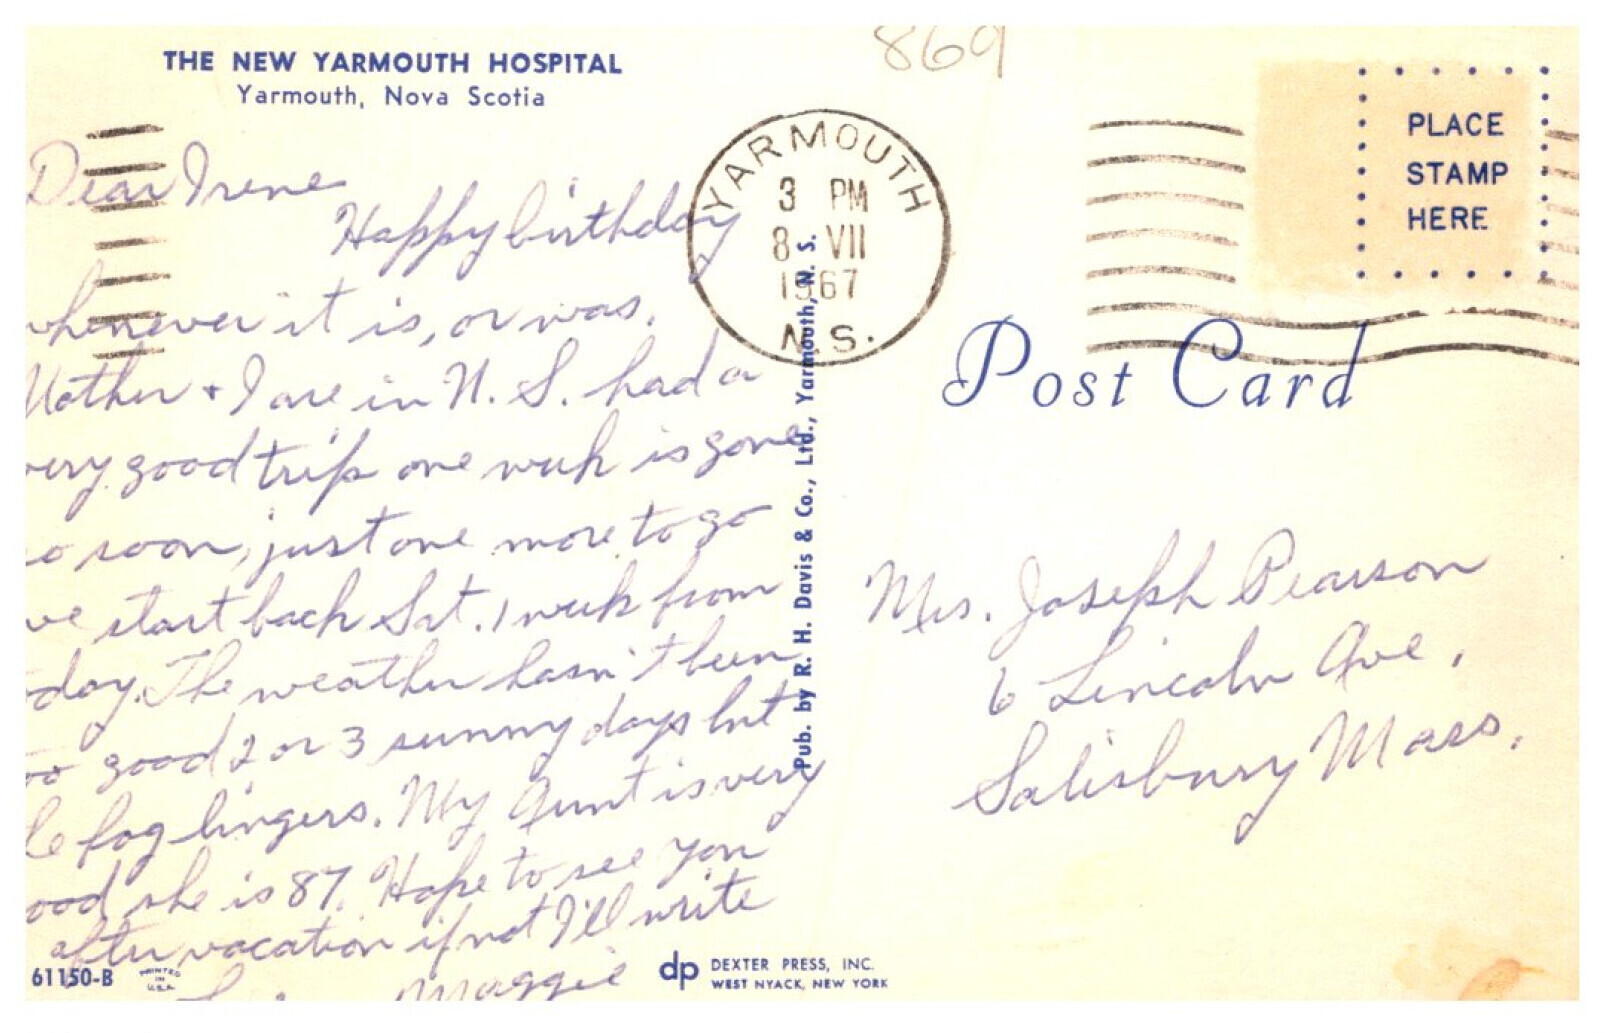 THE NEW YARMOUTH HOSPITAL
Yarmouth, Nova Scotia
869
Dear Irene
Happy birthday
whenever it is, or was.
Mother + I are in N. S. had a
very good trip one week is gone
so soon, just one more to go
we start back Sat. 1 week from
today. The weather hasn't been
too good 2 or 3 sunny days but
fog lingers. My Aunt is very
good she is 87. Hope to see you
after vacation if not I'll write
Maggie
61150-B
PRINTED
IN
U.S.A.
dp DEXTER PRESS, INC.
WEST NYACK, NEW YORK
Pub. by R. H. Davis & Co., Ltd., Yarmouth, N. S.
YARMOUTH
3 PM
8 VII
1967
N.S.
PLACE
STAMP
HERE
Post Card
Mrs. Joseph Pearson
6 Lincoln Ave,
Salisbury Mass.